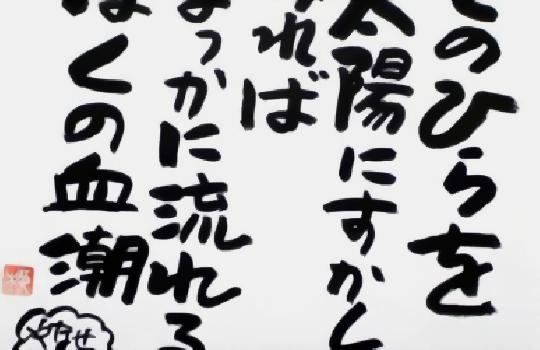 のひらを
太陽にすかし
れば
まっかに流れる
ぼくの血潮
やなせ